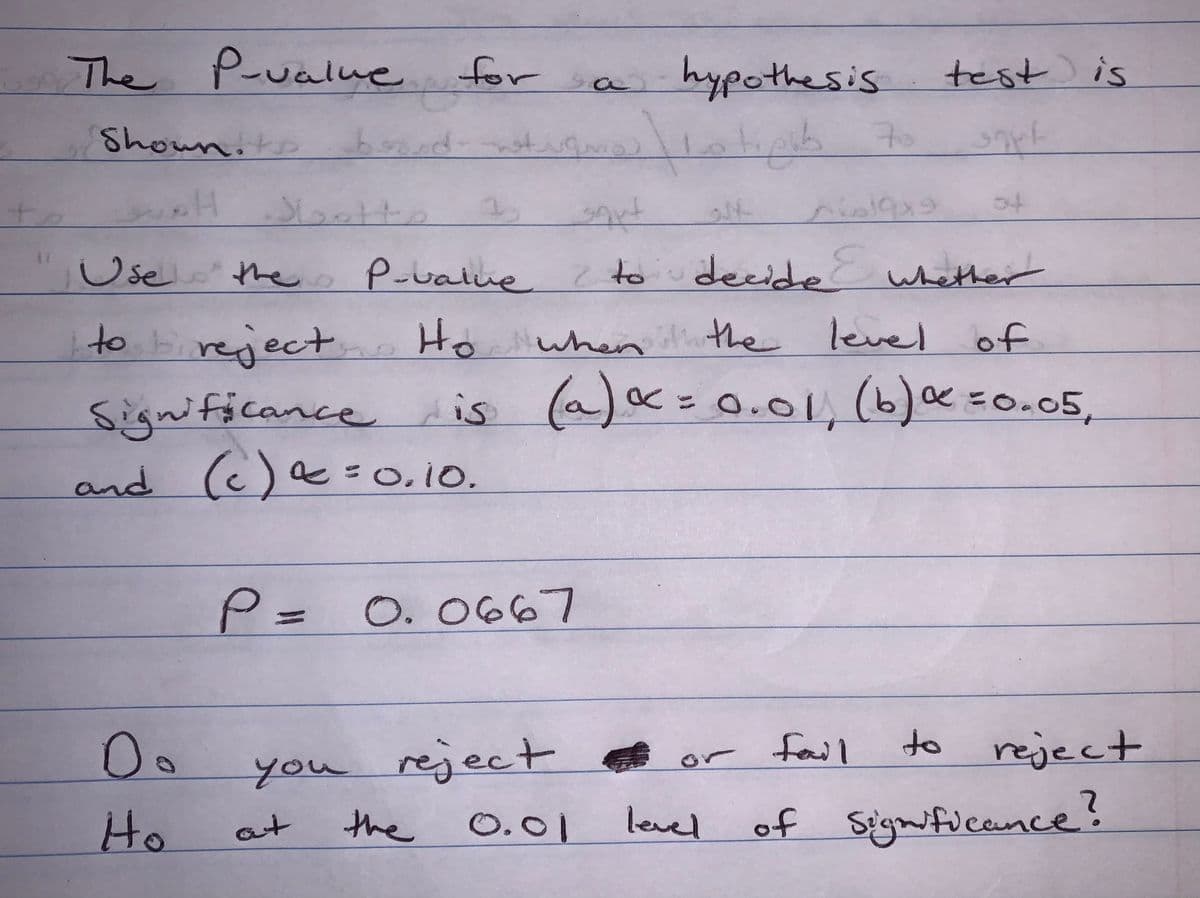 The P-value for a hypothesis test is
shown.
Use the P-value to decide whether
to reject Ho when the level of
significance is (a) α = 0.01, (b) α = 0.05,
and (c) α = 0.10.
P = 0.0667
Do you reject or fail to reject
Ho at the 0.01 level of significance?